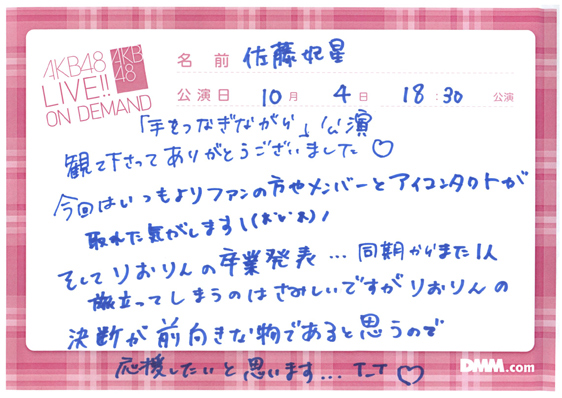 AKB48
LIVE!!
ON DEMAND
AKB
48
名前 佐藤妃星
公演日 10月 4日 18:30 公演
「手をつなぎながら」公演
観て下さってありがとうございました♡
今回はいつもよりファンの方やメンバーとアイコンタクトが
取れた気がします!
そしてりおりんの卒業発表…同期からまた1人
旅立ってしまうのはさみしいですがりおりんの
決断が前向きな物であると思うので
応援したいと思います… T_T♡
DMM.com